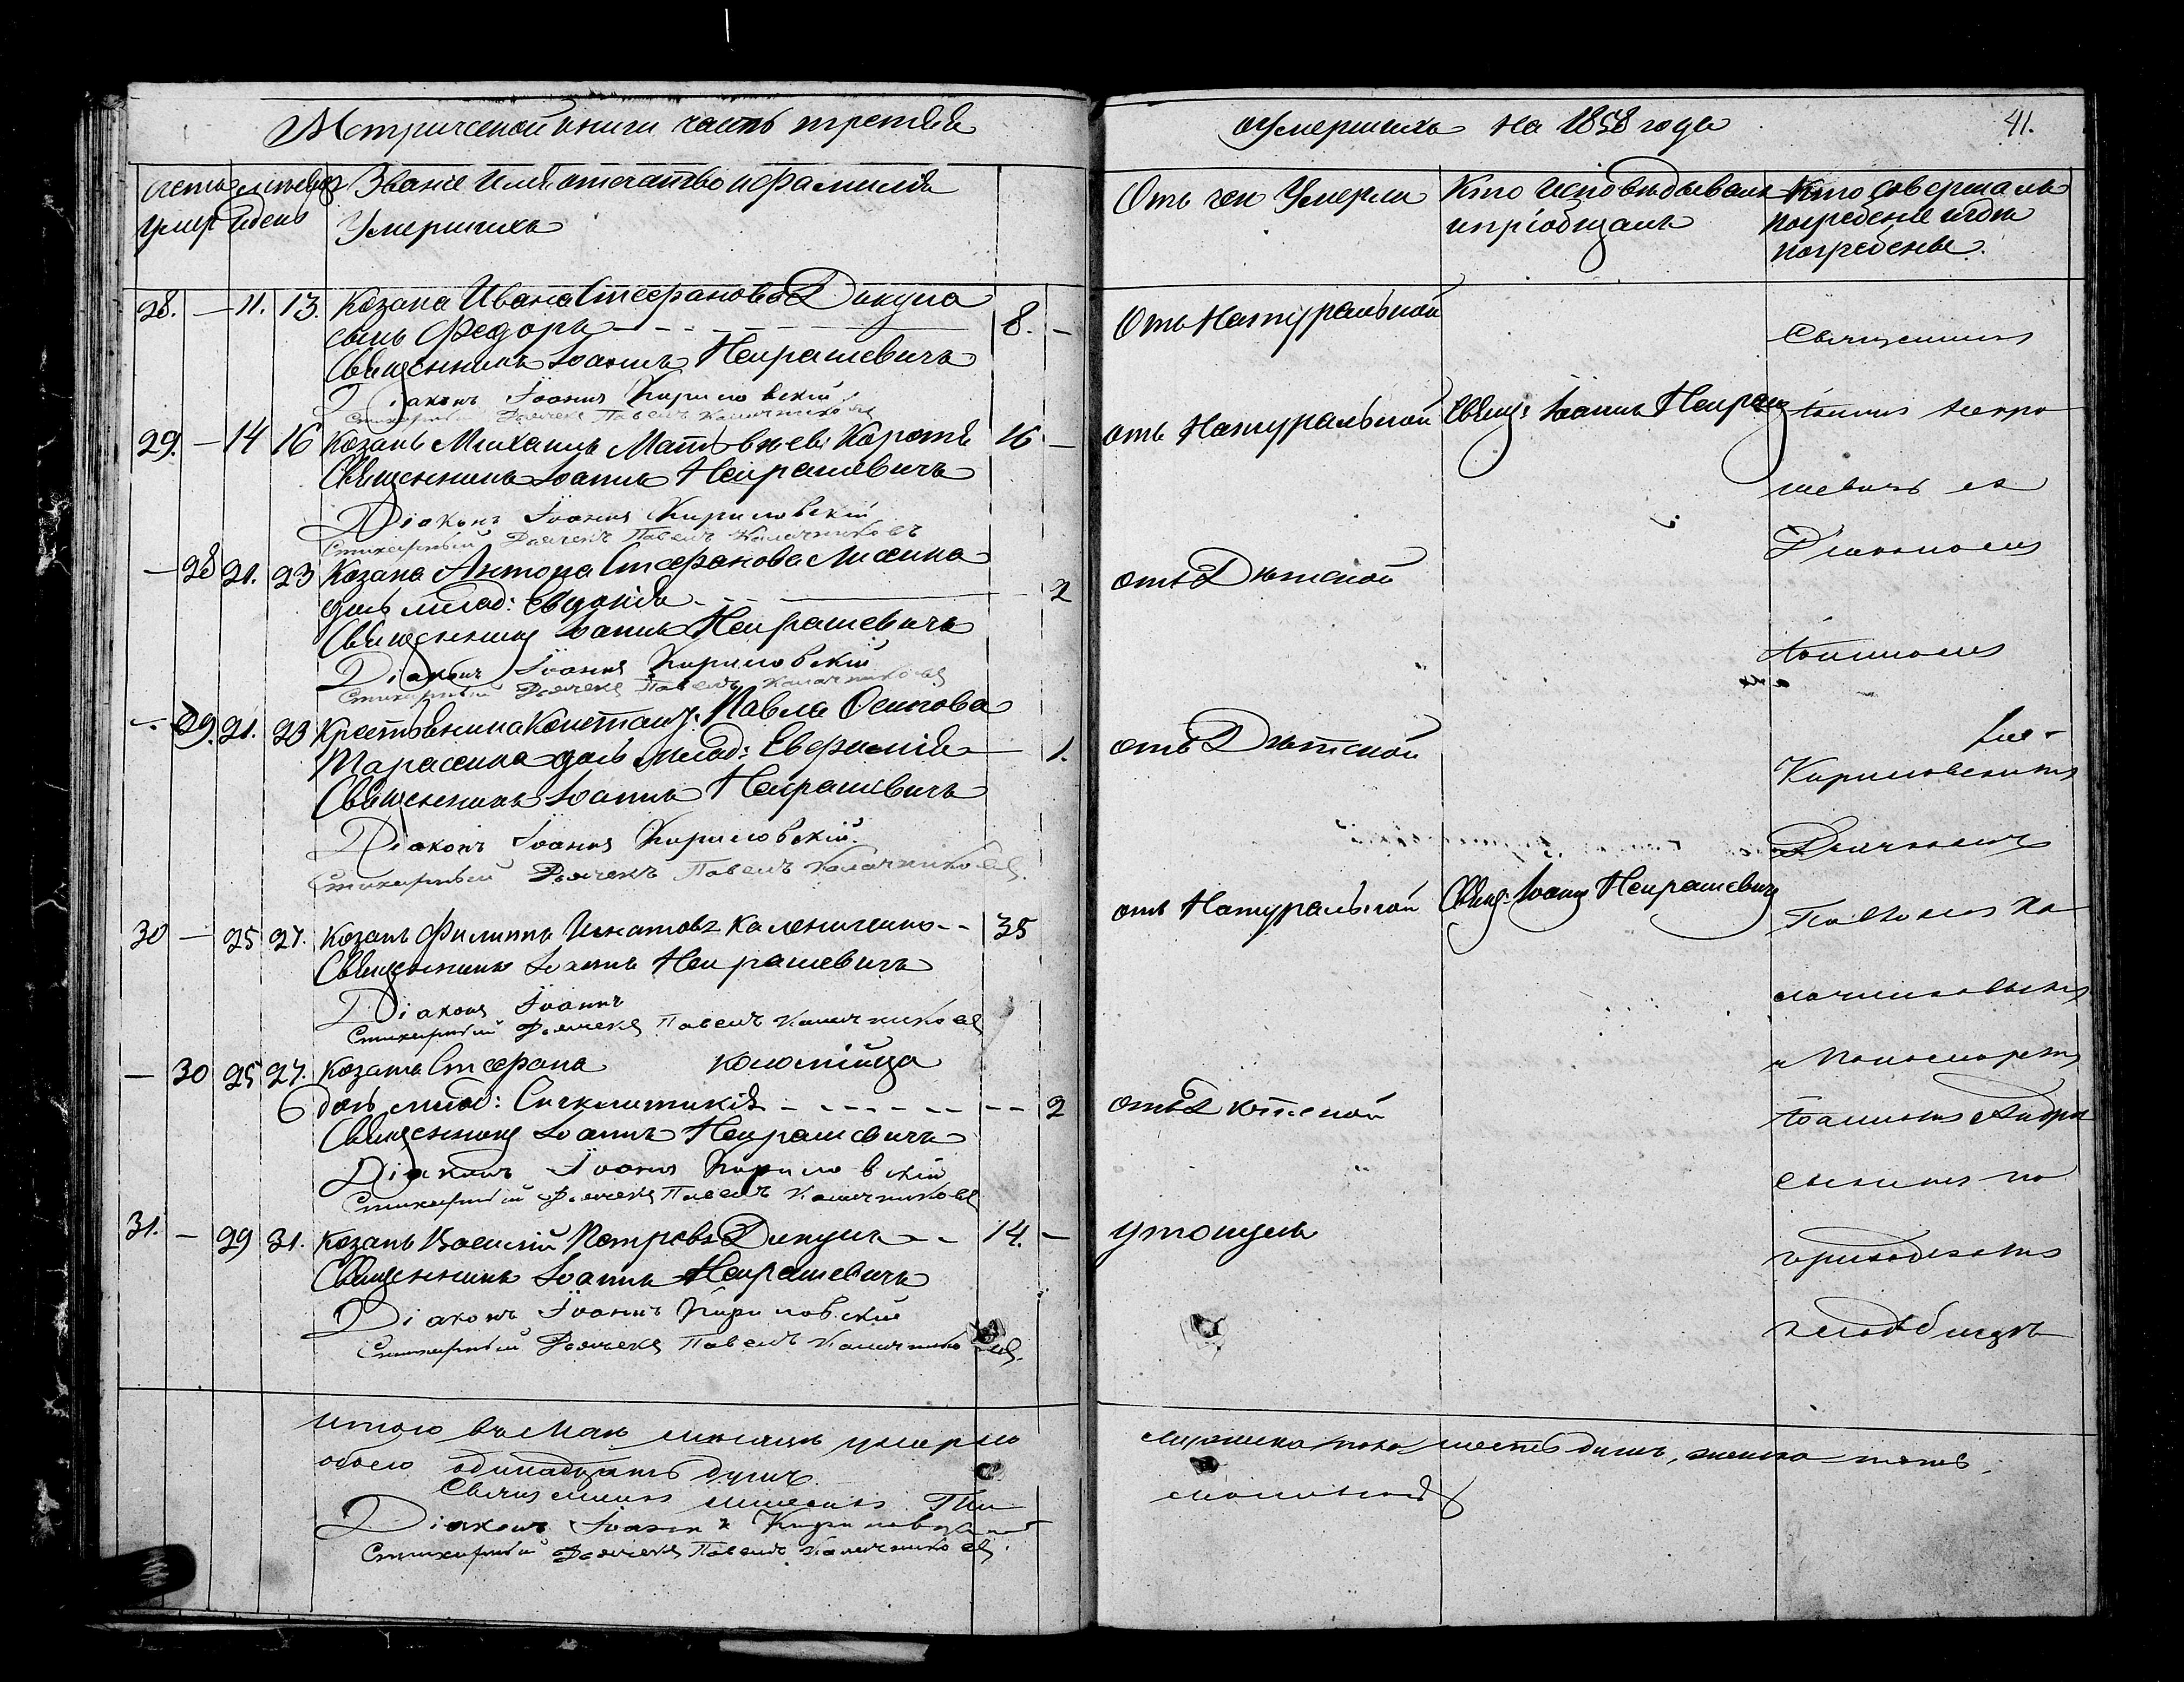 Метрической книги часть третья
счетъ умер
месяцъ и день
Званіе имя отечество и фамилія
Умершихъ
28. — 11. 13. Козака Ивана Стефанова Дикуна
сынъ Федоръ 8. —
Священникъ Іоаннъ Некрашевичъ
Діаконъ Іоаннъ Кириловскій
Стихарный Дьячекъ Павелъ Калачниковъ
29. — 14 16 Козакъ Михаилъ Матвѣевъ 16 —
Священникъ Іоаннъ Некрашевичъ
Діаконъ Іоаннъ Кириловскій
Стихарный Дьячекъ Павелъ Калачниковъ
— 28 21. 23 Козака Антона Стефанова
дочь млад: Евдокія 2
Священникъ Іоаннъ Некрашевичъ
Діаконъ Іоаннъ Кириловскій
Стихарный Дьячекъ Павелъ Калачниковъ
— 29. 21. 23 Крестьянина Павла Осипова
дочь млад: Евфимія 1.
Священникъ Іоаннъ Некрашевичъ
Діаконъ Іоаннъ Кириловскій.
Стихарный Дьячекъ Павелъ Калачниковъ.
30 — 25 27. Козакъ Филиппъ Игнатовъ Калениченко 35
Священникъ Іоаннъ Некрашевичъ
Діаконъ Іоаннъ
Стихарный Дьячекъ Павелъ Калачниковъ
— 30 25 27. Козака Стефана Коломійца
дочь млад: 2
Священникъ Іоаннъ Некрашевичъ
Діаконъ Іоаннъ Кириловскій
Стихарный Дьячекъ Павелъ Калачниковъ
31. — 29 31. Козакъ Василій Петровъ Дикунъ 14. —
Священникъ Іоаннъ Некрашевичъ
Діаконъ Іоаннъ Кириловскій
Стихарный Дьячекъ Павелъ Калачниковъ.
Итого въ Маѣ месяцѣ умерло
обоего одинадцать душъ
Священникъ
Діаконъ Іоаннъ
Стихарный Дьячекъ Павелъ Калачниковъ.
о Умершихъ на 1858 годъ
41.
Отъ чего Умерли
Кто исповѣдывалъ
и пріобщалъ
Кто совершалъ
погребеніе и гдѣ
погребены.
Отъ Натуральной
отъ Натуральной
Свящ: Іоаннъ
отъ Дѣтской
отъ Дѣтской
отъ Натуральной
Свящ: Іоаннъ Некрашевичъ
отъ Дѣтской
утонулъ
Священникъ
Іоаннъ Некра
шевичъ съ
Діакономъ
Іоанномъ
Кириловскимъ
Дьячкомъ
Павломъ Ка
лачниковымъ
и Пономаремъ
Іоанномъ
на
приходскомъ
кладбищѣ
мужеска пола шесть душъ, женска пять.